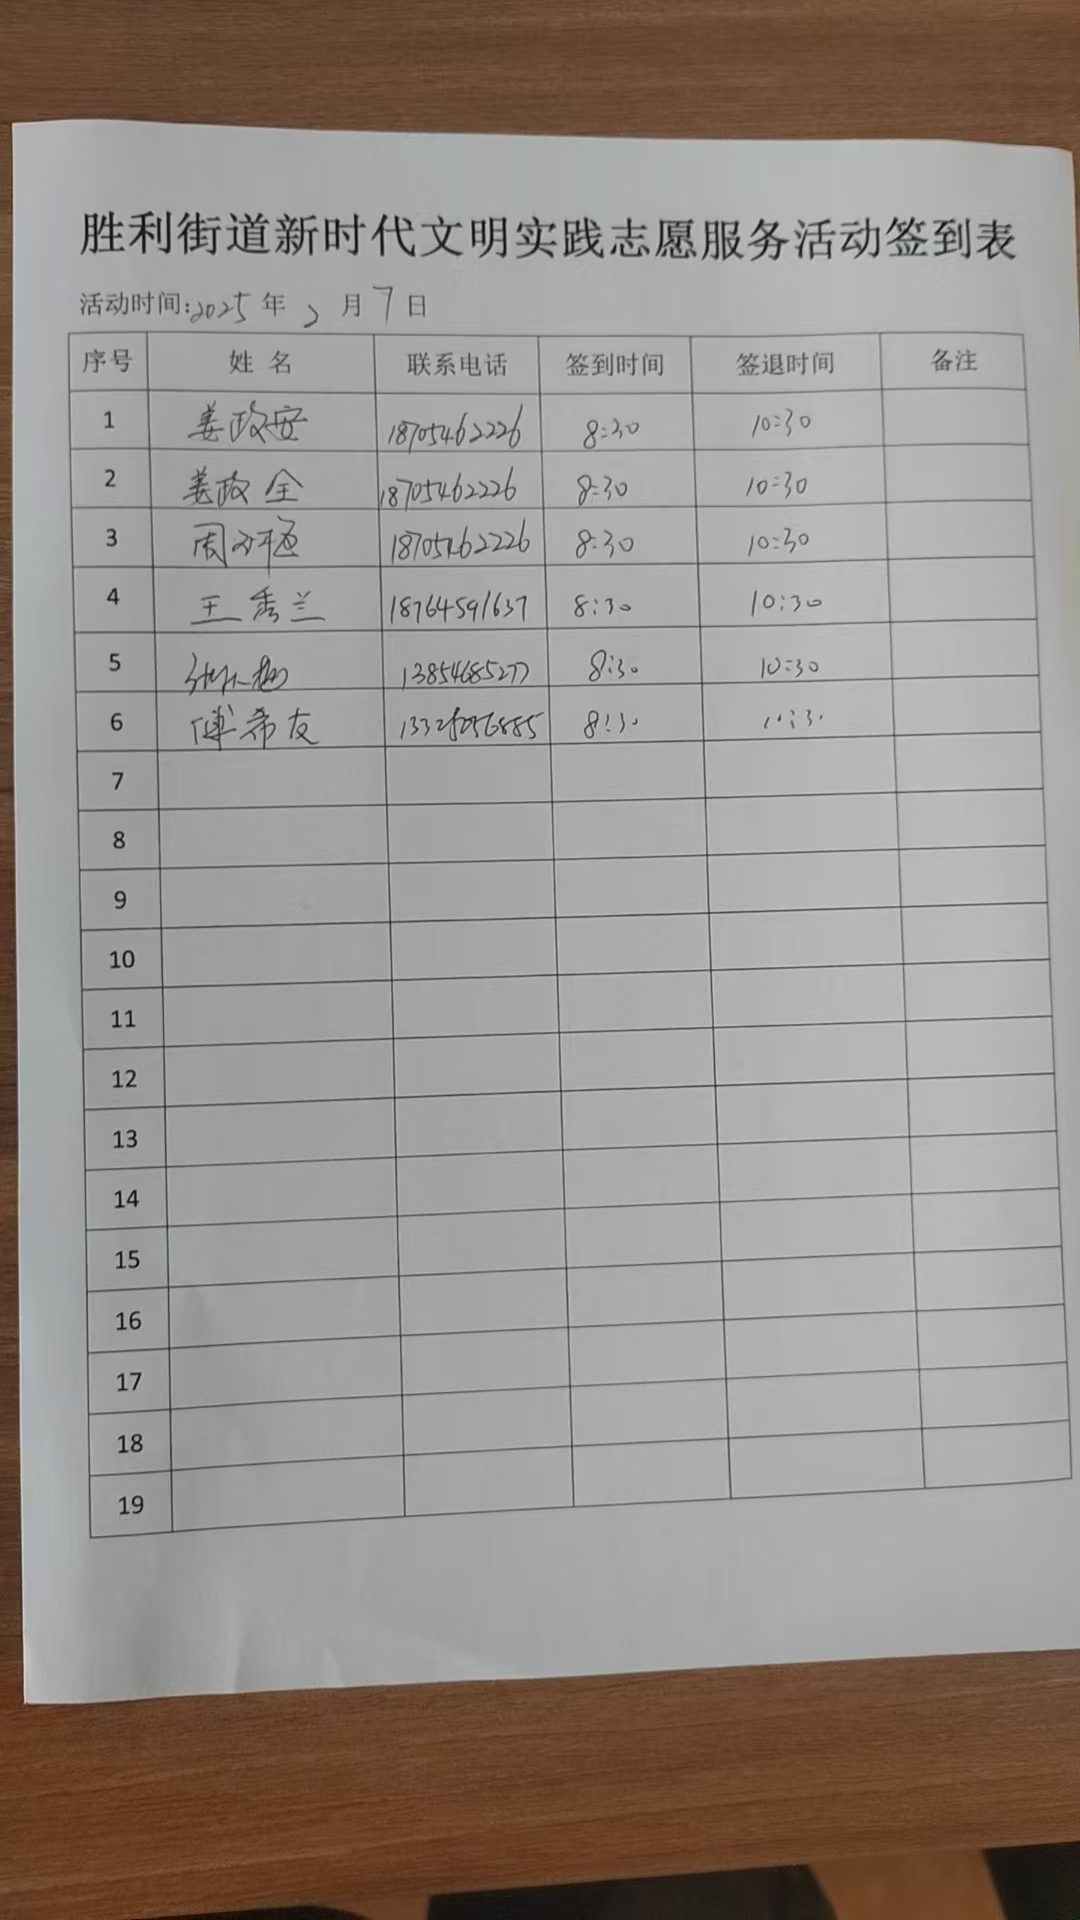 胜利街道新时代文明实践志愿服务活动签到表
活动时间:2025年2月7日
序号 姓名 联系电话 签到时间 签退时间 备注
1 姜政安 18705462226 8:30 10:30
2 姜政全 18705462226 8:30 10:30
3 周 18705462226 8:30 10:30
4 王秀兰 18764591637 8:30 10:30
5 13854685277 8:30 10:30
6 傅希友 8:30 10:30
7
8
9
10
11
12
13
14
15
16
17
18
19